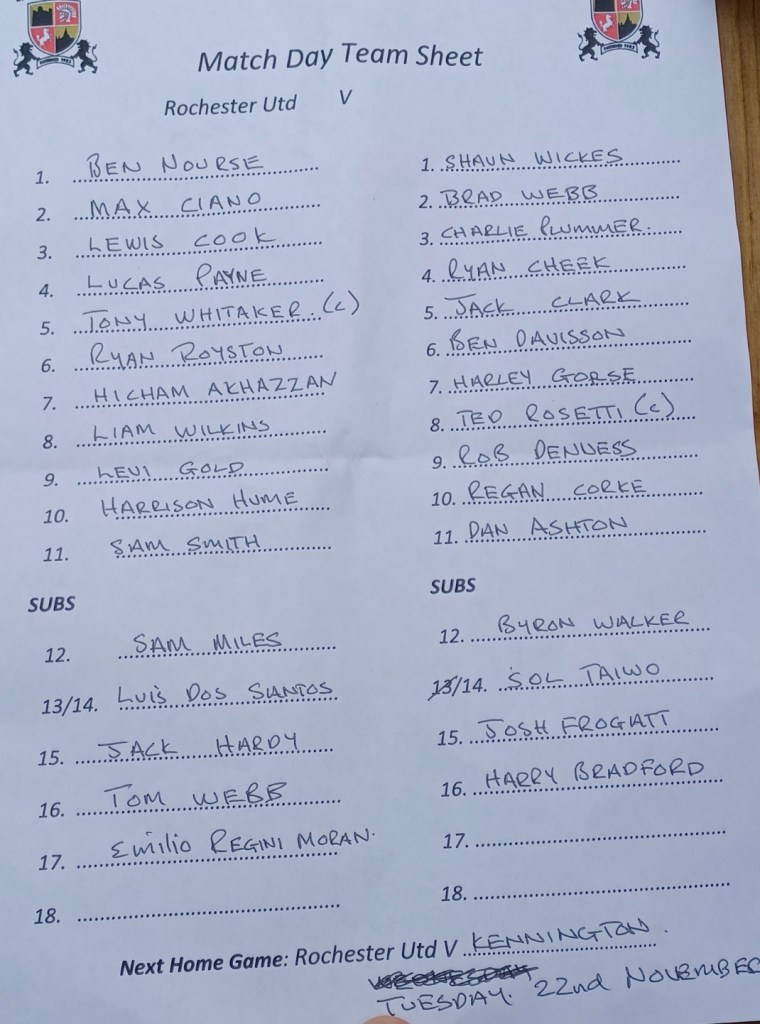 Match Day Team Sheet
Rochester Utd V
1. BEN NOURSE
2. MAX CIANO
3. LEWIS COOK
4. LUCAS PAYNE
5. TONY WHITAKER (C)
6. RYAN ROYSTON
7. HICHAM AKHAZZAN
8. LIAM WILKINS
9. LEVI GOLD
10. HARRISON HUME
11. SAM SMITH
SUBS
12. SAM MILES
13/14. LUIS DOS SANTOS
15. JACK HARDY
16. TOM WEBB
17. Emilio REGINI MORAN.
18.
1. SHAUN WICKES
2. BRAD WEBB
3. CHARLIE PLUMMER
4. RYAN CHEEK
5. JACK CLARK
6. BEN DAVISSON
7. HARLEY GORSE
8. TED ROSETTI (C)
9. ROB DENNESS
10. REGAN CORKE
11. DAN ASHTON
SUBS
12. BYRON WALKER
13/14. SOL TAIWO
15. JOSH FROGIATT
16. HARRY BRADFORD
17.
18.
Next Home Game: Rochester Utd V KENNINGTON.
TUESDAY. 22nd NOVEMBER